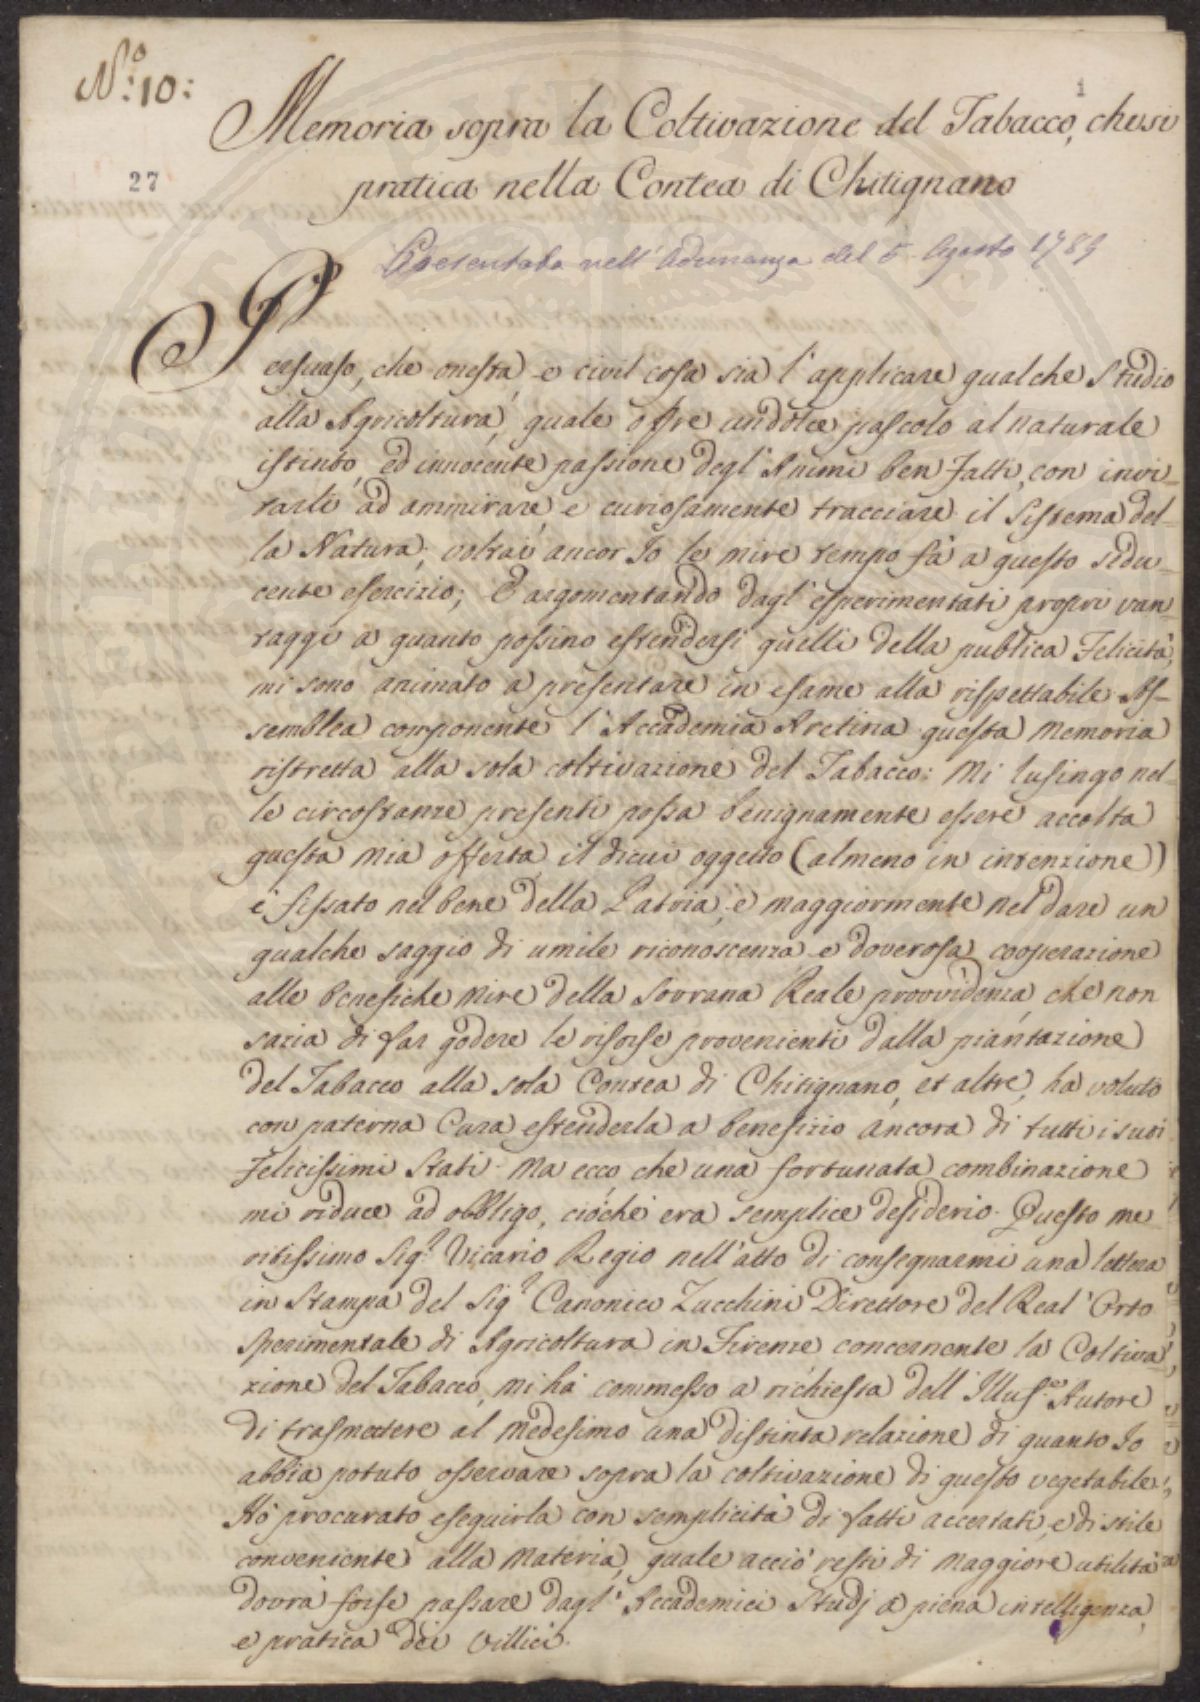 N.º 10:
1
Memoria sopra la Coltivazione del Tabacco, che si
pratica nella Contea di Chitignano
27
Presentata nell'Adunanza del 5. Agosto 1789
Persuaso, che onesta, e civil cosa sia l'applicare qualche Studio
alla Agricoltura, quale offre un dolce pascolo al naturale
istinto, ed innocente passione degl'Animi ben fatti, con invi-
tarli ad ammirare, e curiosamente tracciare il Sistema del-
la Natura; voltai ancor Io le mire tempo fà a questo sedu-
cente esercizio; E argomentando dagl'esperimentati propri van-
taggi a quanto possino estendersi quelli della publica Felicità,
mi sono animato a presentare in esame alla rispettabile As-
semblea componente l'Accademia Aretina questa Memoria
ristretta alla sola coltivazione del Tabacco: Mi lusingo nel-
le circostanze presenti possa benignamente essere accolta
questa mia offerta il di cui oggetto (almeno in intenzione)
è fissato nel bene della Patria, e maggiormente nel dare un
qualche saggio di umile riconoscenza e doverosa cooperazione
alle benefiche mire della Sovrana Reale provvidenza, che non
sazia di far godere le risorse provenienti dalla piantazione
del Tabacco alla sola Contea di Chitignano, et altre, ha voluto
con paterna Cura estenderla a benefizio ancora di tutti i suoi
Felicissimi Stati. Ma ecco che una fortunata combinazione
mi riduce ad obbligo, ciòchè era semplice desiderio. Questo me-
ritissimo Sig.r Vicario Regio nell'atto di consegnarmi una lettera
in Stampa del Sig.r Canonico Zucchini Direttore del Real'Orto
Sperimentale di Agricoltura in Firenze concernente la Coltiva-
zione del Tabacco, mi hà commesso a richiesta dell'Illus.e Autore
di trasmettere al medesimo una distinta relazione di quanto Io
abbia potuto osservare sopra la coltivazione di questo vegetabile;
Hò procurato eseguirla con semplicità di fatti accertati, e di stile
conveniente alla Materia, quale acciò resti di maggiore utilità
dovrà forse passare dagl'Accademici Studj a piena intelligenza,
e pratica dei Villici.